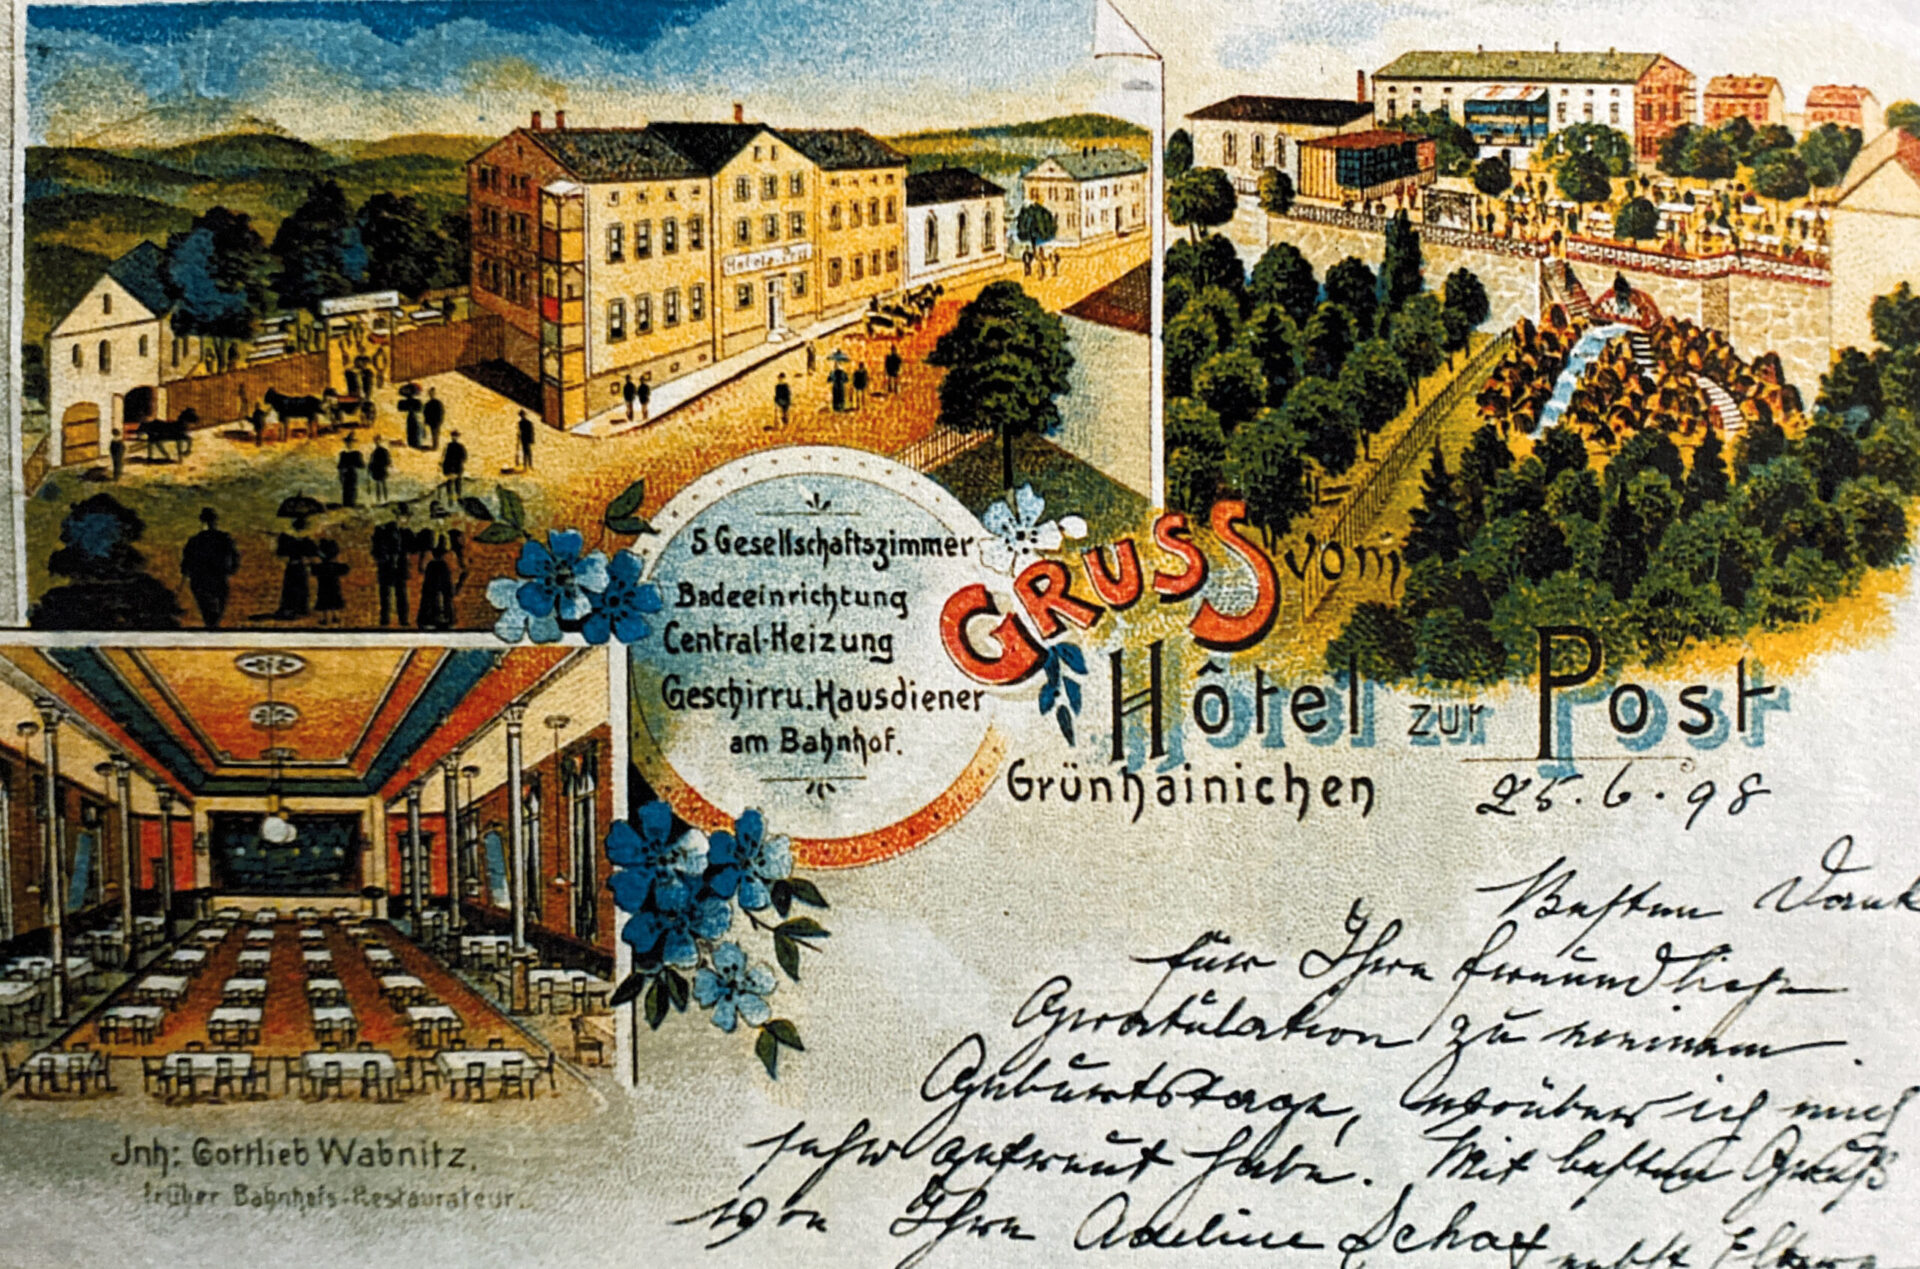 Hotel z. Post
5 Gesellschaftszimmer
Badeeinrichtung
Central-Heizung
Geschirr u. Hausdiener
am Bahnhof.
GRUSS vom
Hôtel zur Post
Grünhainichen
25. 6. 98
Besten Dank
für Ihre freundliche
Gratulation zu meinem
Geburtstage, worüber ich mich
sehr gefreut habe. Mit besten Gruß
von Ihrer Adeline Schaf nebst Eltern
Jnh: Gottlieb Wabnitz,
früher Bahnhofs-Restaurateur.